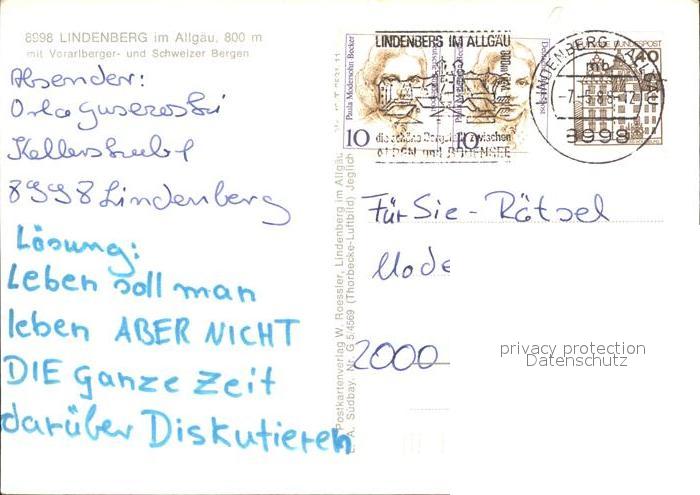 8998 LINDENBERG im Allgäu, 800 m
mit Vorarlberger- und Schweizer Bergen
Absender:
8998 Lindenberg
Lösung:
Leben soll man
leben ABER NICHT
DIE ganze Zeit
darüber Diskutieren
Postkartenverlag W. Roessler, Lindenberg im Allgäu
Südbay. Nr. G 5/4569 (Thorbecke-Luftbild) Jeglich
Paula Modersohn-Becker
10
LINDENBERG IM ALLGÄU
die schöne Bergstadt zwischen
ALPEN und BODENSEE
10
BUNDESPOST
40
LINDENBERG, ALLGÄU
mb
-7.-5.88-12
8998
Für Sie - Rätsel
Mode
2000
privacy protection
Datenschutz